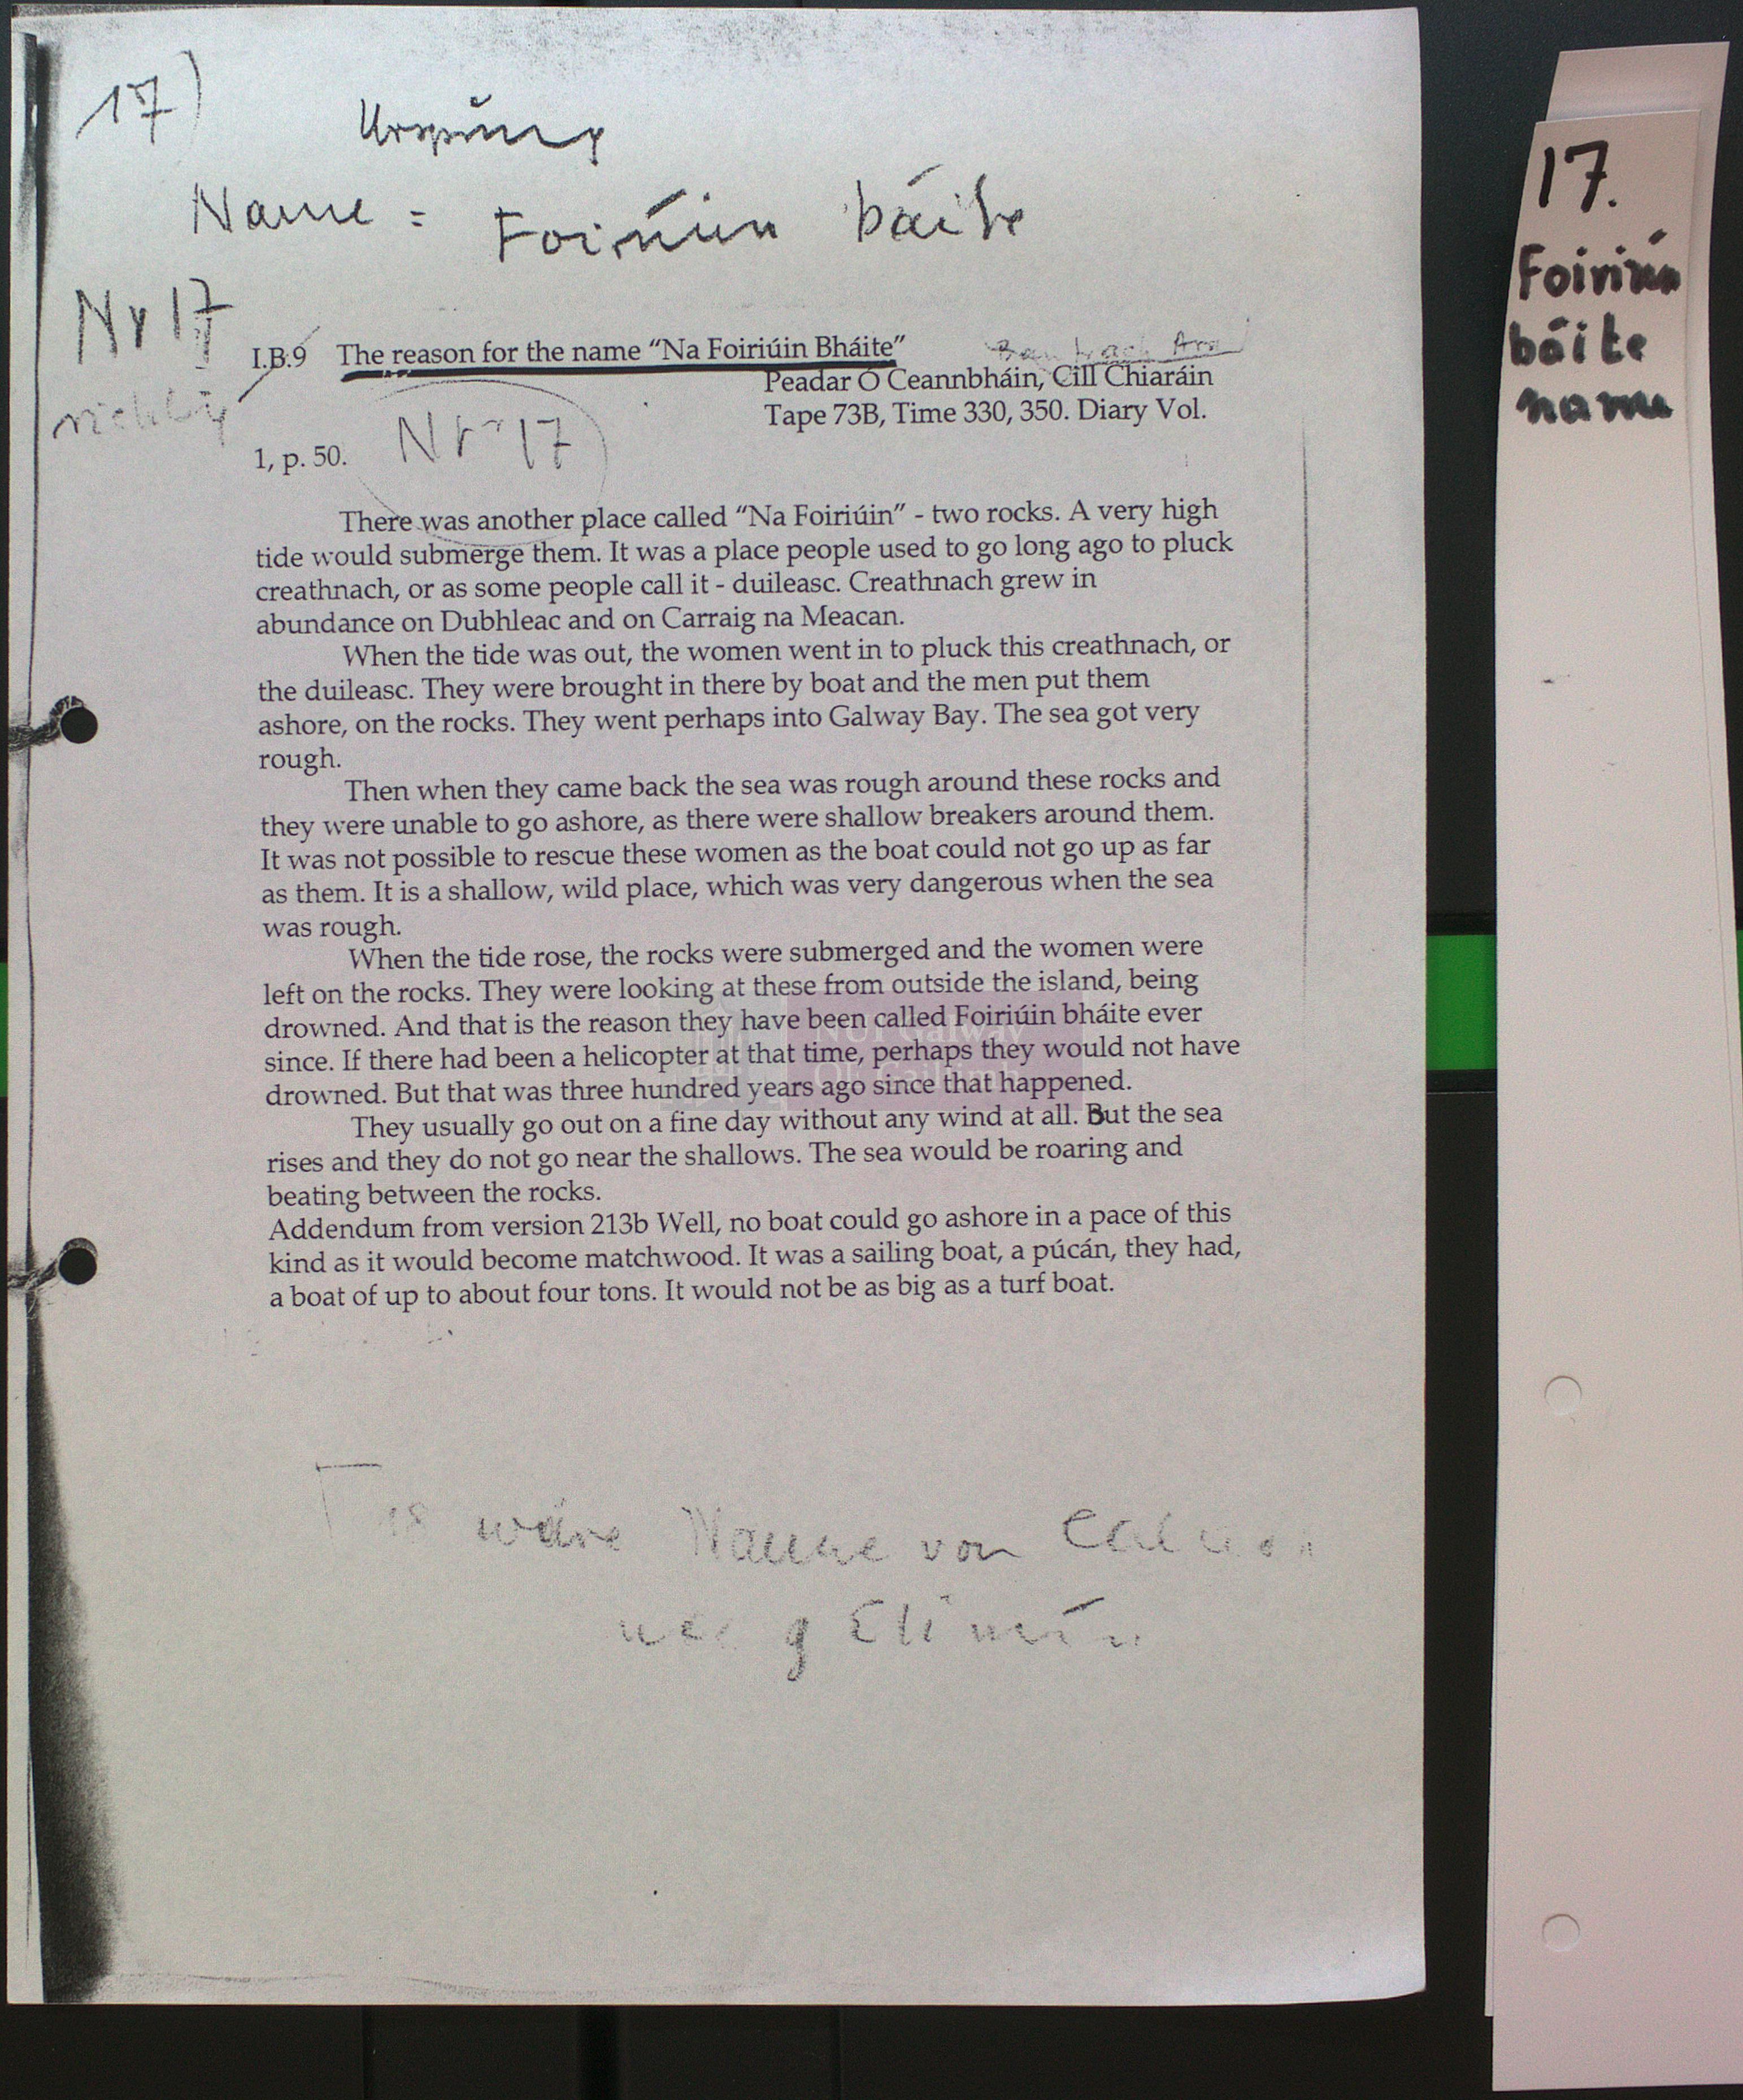 17)
Ursprung
Name = Foiriúin báite
Nr 17
richtig
I.B.9 The reason for the name “Na Foiriúin Bháite”
Peadar Ó Ceannbháin, Cill Chiaráin
Tape 73B, Time 330, 350. Diary Vol.
1, p. 50. Nr 17
There was another place called “Na Foiriúin” - two rocks. A very high
tide would submerge them. It was a place people used to go long ago to pluck
creathnach, or as some people call it - duileasc. Creathnach grew in
abundance on Dubhleac and on Carraig na Meacan.
When the tide was out, the women went in to pluck this creathnach, or
the duileasc. They were brought in there by boat and the men put them
ashore, on the rocks. They went perhaps into Galway Bay. The sea got very
rough.
Then when they came back the sea was rough around these rocks and
they were unable to go ashore, as there were shallow breakers around them.
It was not possible to rescue these women as the boat could not go up as far
as them. It is a shallow, wild place, which was very dangerous when the sea
was rough.
When the tide rose, the rocks were submerged and the women were
left on the rocks. They were looking at these from outside the island, being
drowned. And that is the reason they have been called Foiriúin bháite ever
since. If there had been a helicopter at that time, perhaps they would not have
drowned. But that was three hundred years ago since that happened.
They usually go out on a fine day without any wind at all. But the sea
rises and they do not go near the shallows. The sea would be roaring and
beating between the rocks.
Addendum from version 213b Well, no boat could go ashore in a pace of this
kind as it would become matchwood. It was a sailing boat, a púcán, they had,
a boat of up to about four tons. It would not be as big as a turf boat.
wäre Name von
NUI Galway
OÉ Gaillimh
17.
Foiriún
báite
name